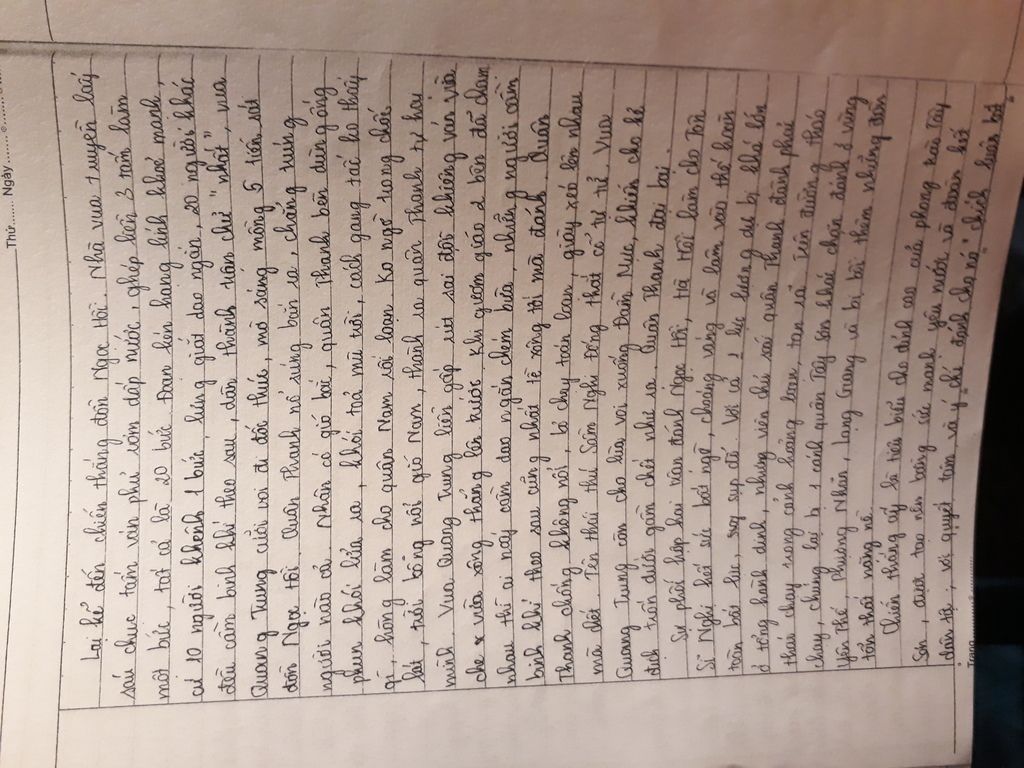 Thứ....... Ngày..........
Lại kể đến chiến thắng đồn Ngọc Hồi. Nhà vua truyền lấy
sáu chục tấm ván phủ rơm dấp nước, ghép liền 3 tấm làm
một bức, tất cả là 20 bức. Đoạn lính khoẻ mạnh,
cứ 10 người khênh 1 bức, lưng giắt dao ngắn, 20 người khác
đều cầm binh khí theo sau, dàn thành trận chữ "nhất", vua
Quang Trung cưỡi voi đi đốc thúc, mờ sáng mồng 5 tiến sát
đồn Ngọc Hồi. Quân Thanh nổ súng bắn ra, chẳng trúng
người nào cả. Nhân có gió bắc, quân Thanh bèn dùng ống
phun khói lửa ra, khói toả mù trời, cách gang tấc ko thấy
gì, hòng làm cho quân Nam rối loạn. Ko ngờ trong chốc
lát, trời bỗng nổi gió Nam, thành ra quân Thanh tự hại
mình. Vua Quang Trung liền gấp rút sai đội khiêng ván vừa
che vừa xông thẳng lên trước. Khi gươm giáo 2 bên đã chạm
nhau thì ai nấy cầm dao ngắn chém bừa, những người cầm
binh khí theo sau cũng nhất tề xông tới mà đánh. Quân
Thanh chống không nổi, bỏ chạy toán loạn, giày xéo lên nhau
mà chết. Tên thái thú Sầm Nghi Đống thắt cổ tự tử. Vua
Quang Trung còn cho lùa voi xuống Đầm Mực, khiến cho kẻ
địch trốn dưới đầm chết như rạ. Quân Thanh đại bại.
Sự phối hợp hai trận đánh Ngọc Hồi, Hà Hồi làm cho Tôn
Sĩ Nghị hết sức bất ngờ, choáng váng và lâm vào thế hoàn
toàn bất lực, suy sụp đổ. Với cả 1 lực lượng dự bị khá lớn
ở tổng hành dinh, nhưng viên chủ soái quân Thanh đành phải
tháo chạy trong cảnh hoảng loạn, tan rã. Trên đường tháo
chạy, chúng lại bị 1 cánh quân Tây Sơn khác chặn đánh ở vùng
Yên Thế, Phượng Nhãn, Lạng Giang và lại bị thêm những đòn
tổn thất nặng nề
Chiến thắng ấy là tiêu biểu cho đỉnh cao của phong trào Tây
Sơn, được tạo nên bằng sức mạnh yêu nước và đoàn kết
dân tộc, với quyết tâm và ý chí "đánh cho nó" chích luân bất
Trang..........